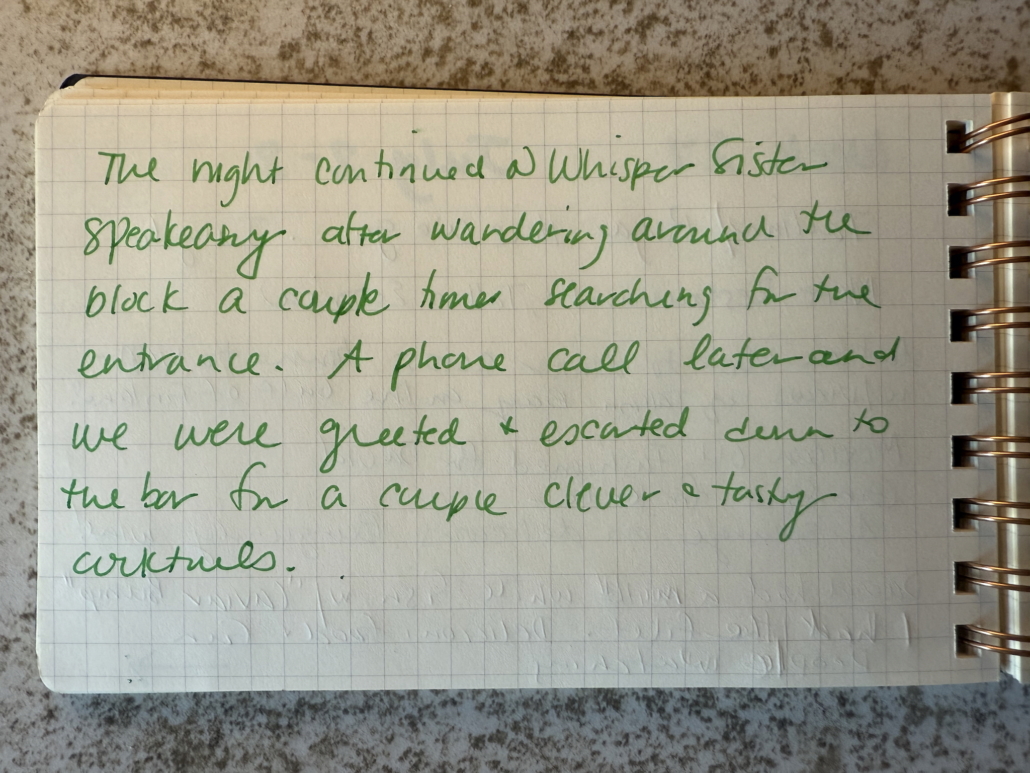 The night continued @ Whisper Sister
speakeasy after wandering around the
block a couple times searching for the
entrance. A phone call later and
we were greeted & escorted down to
the bar for a couple clever & tasty
cocktails.